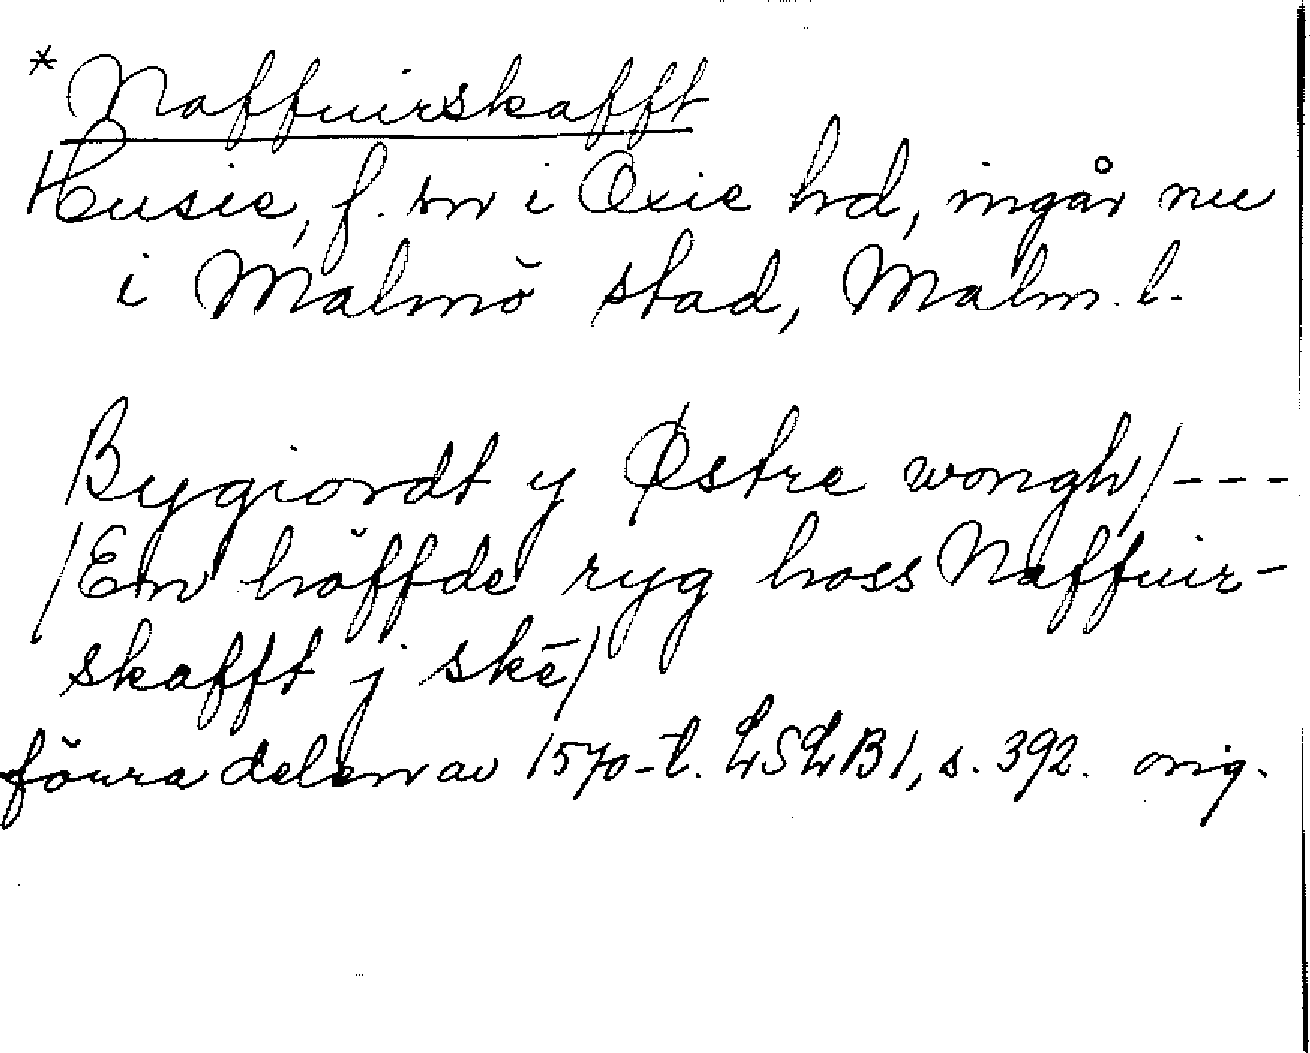 *Naffuirskafft
Husie, f. sn i Oxie hd, ingår nu
i Malmö stad, Malm. l.
Bygiordt y Østre wongh/---
/Em höffde ryg hoss Naffuir-
skafft j skē/
förra delen av 1570-t. LSLB1, s. 392. orig.